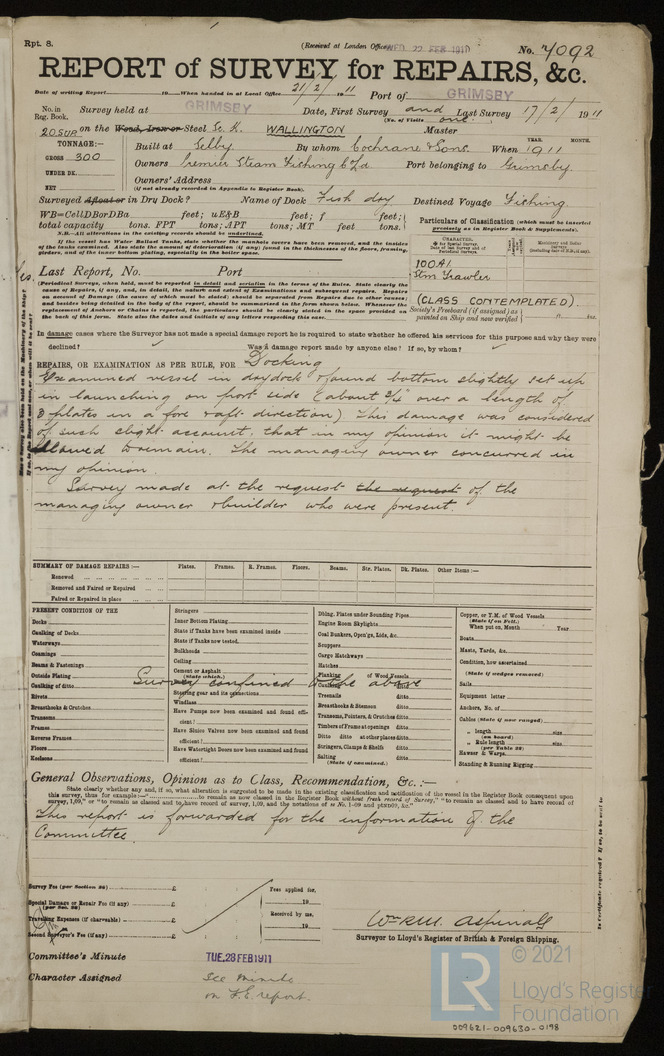 Rpt. 8.
(Received at London Office WED. 22 FEB 1911)
No. 7092
REPORT of SURVEY for REPAIRS, &c.
Date of writing Report 19 When handed in at Local Office 21/2/1911 Port of GRIMSBY
No. in Reg. Book. Survey held at GRIMSBY Date, First Survey and Last Survey 17/2/1911
(No. of Visits one)
20 SUP on the Wood, Iron or Steel Sc. K. WALLINGTON Master
TONNAGE:— Built at Selby By whom Cochrane & Sons. When 1911
YEAR. MONTH.
GROSS 300 Owners Premier Steam Fishing Co Ld Port belonging to Grimsby.
UNDER DK.
NET
Owners' Address
(if not already recorded in Appendix to Register Book).
Surveyed Afloat or in Dry Dock? Name of Dock Fish dry Destined Voyage Fishing.
WB=CellDBorDBa feet; uE&B feet; f feet;
total capacity tons. FPT tons; APT tons; MT feet tons.
N.B.—All alterations in the existing records should be underlined.
If the vessel has Water Ballast Tanks, state whether the manhole covers have been removed, and the insides
of the tanks examined. Also state the amount of deterioration (if any) found in the thicknesses of the floors, framing,
girders, and of the inner bottom plating, especially in the boiler space.
Particulars of Classification (which must be inserted
precisely as in Register Book & Supplements).
100A1.
Stm Trawler
(CLASS CONTEMPLATED).
Society's Freeboard (if assigned) as
painted on Ship and now verified
ft. ins.
Last Report, No. Port
(Periodical Surveys, when held, must be reported in detail and seriatim in the terms of the Rules. State clearly the
causes of Repairs, if any, and, in detail, the nature and extent of Examinations and subsequent repairs. Repairs
on account of Damage (the cause of which must be stated) should be separated from Repairs due to other causes;
and besides being detailed in the body of the report, should be summarised in the form shewn below. Whenever the
replacement of Anchors or Chains is reported, the particulars should be clearly stated in the space provided on
the back of this form. State also the dates and initials of any letters respecting this case.)
In damage cases where the Surveyor has not made a special damage report he is required to state whether he offered his services for this purpose and why they were
declined? Was a damage report made by anyone else? If so, by whom?
REPAIRS, OR EXAMINATION AS PER RULE, FOR Docking
Examined vessel in drydock & found bottom slightly set up
in launching on port side (about 3/4" over a length of
3 plates in a fore & aft direction). This damage was considered
of such slight account, that in my opinion it might be
allowed to remain. The managing owner concurred in
my opinion.
Survey made at the request the request of the
managing owner & builder who were present.
SUMMARY OF DAMAGE REPAIRS:— Plates. Frames. R. Frames. Floors. Beams. Str. Plates. Dk. Plates. Other Items:—
Renewed
Removed and Faired or Repaired
Faired or Repaired in place
PRESENT CONDITION OF THE
Decks
Caulking of Decks
Waterways
Coamings
Beams & Fastenings
Outside Plating
Caulking of ditto
Rivets
Breasthooks & Crutches
Transoms
Frames
Reverse Frames
Floors
Keelsons
Stringers
Inner Bottom Plating
State if Tanks have been examined inside
State if Tanks now tested
Bulkheads
Ceiling
Cement or Asphalt
(State which.)
Survey confined to the above
Steering gear and its connections
Windlass
Have Pumps now been examined and found efficient?
Have Sluice Valves now been examined and found efficient?
Have Watertight Doors now been examined and found efficient?
Dbling. Plates under Sounding Pipes
Engine Room Skylights
Coal Bunkers, Open'gs, Lids, &c.
Scuppers
Cargo Hatchways
Hatches
Planking of Wood Vessels
Caulking ditto
Treenails ditto
Breasthooks & Stemson ditto
Transoms, Pointers, & Crutches ditto
Timbers of Frame at openings ditto
Ditto ditto at other places ditto
Stringers, Clamps & Shelfs ditto
Salting ditto
(State if examined.)
Copper, or Y.M. of Wood Vessels
(State if on Felt.)
When put on, Month Year
Boats
Masts, Yards, &c.
Condition, how ascertained
(State if wedges removed)
Sails
Equipment letter
Anchors, No. of
Cables (State if now ranged)
" length size
(on board)
" Rule length size
(per Table 22)
Hawser & Warps
Standing & Running Rigging
General Observations, Opinion as to Class, Recommendation, &c.:—
State clearly whether any and, if so, what alteration is suggested to be made in the existing classification and notification of the vessel in the Register Book consequent upon
this survey, thus for example:—" to remain as now classed in the Register Book without fresh record of Survey," "to remain as classed and to have record of
survey, 1,09," or "to remain as classed and to have record of survey, 1,09, and the notations of ss No. 1-09 and ptND09, &c."
This report is forwarded for the information of the
Committee.
Survey Fee (per Section 29) £
Special Damage or Repair Fee (if any) £
(per Sec. 29)
Travelling Expenses (if chargeable) £
Second Surveyor's Fee (if any) £
Fees applied for,
19
Received by me,
19
Wm R.M. Aspinall
Surveyor to Lloyd's Register of British & Foreign Shipping.
Committee's Minute TUE. 28 FEB 1911
Character Assigned See minute
on F.E. report.
LR
© 2021
Lloyd's Register
Foundation
009621-009630-0198